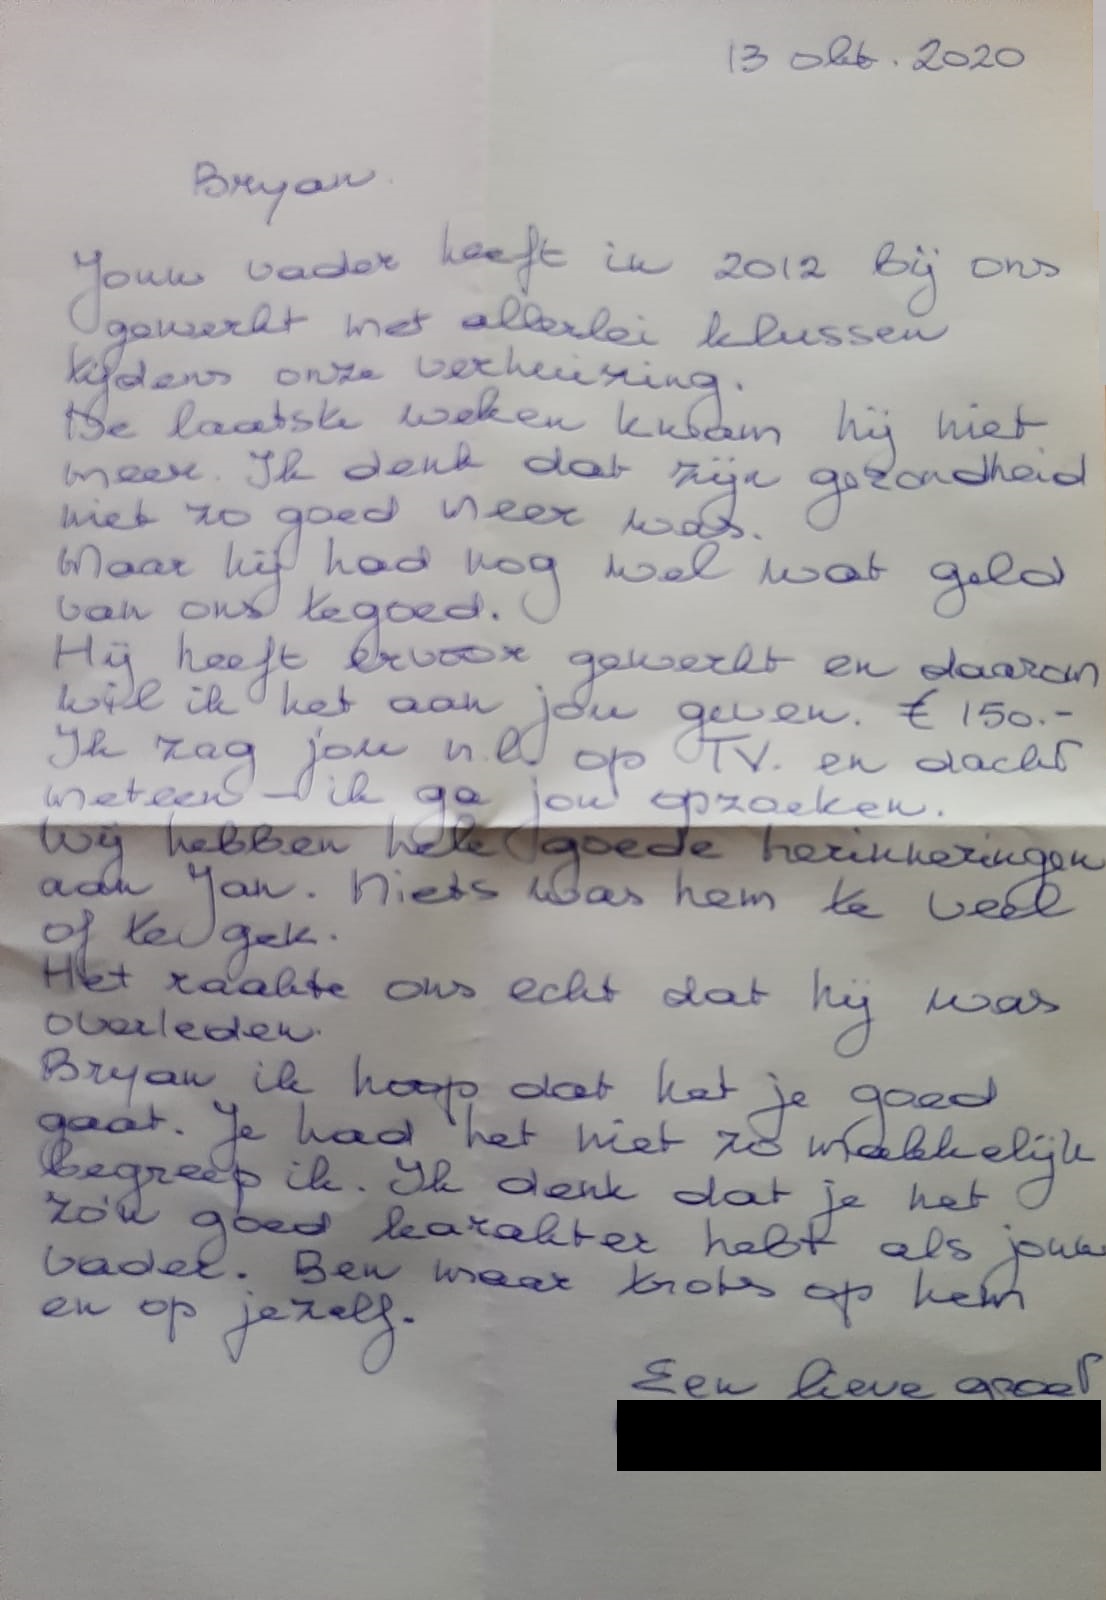 13 okt. 2020
Bryan.
Jouw vader heeft in 2012 bij ons
gewerkt met allerlei klussen
tijdens onze verhuizing.
De laatste weken kwam hij niet
meer. Ik denk dat zijn gezondheid
niet zo goed meer was.
Maar hij had nog wel wat geld
van ons tegoed.
Hij heeft ervoor gewerkt en daarom
wil ik het aan jou geven. € 150.-
Ik zag jou n.l. op TV. en dacht
meteen - ik ga jou opzoeken.
Wij hebben hele goede herinneringen
aan Jan. Niets was hem te veel
of te gek.
Het raakte ons echt dat hij was
overleden.
Bryan ik hoop dat het je goed
gaat. Je had het niet zo makkelijk
begreep ik. Ik denk dat je het
zo'n goed karakter hebt als jouw
vader. Ben maar trots op hem
en op jezelf.
Een lieve groet